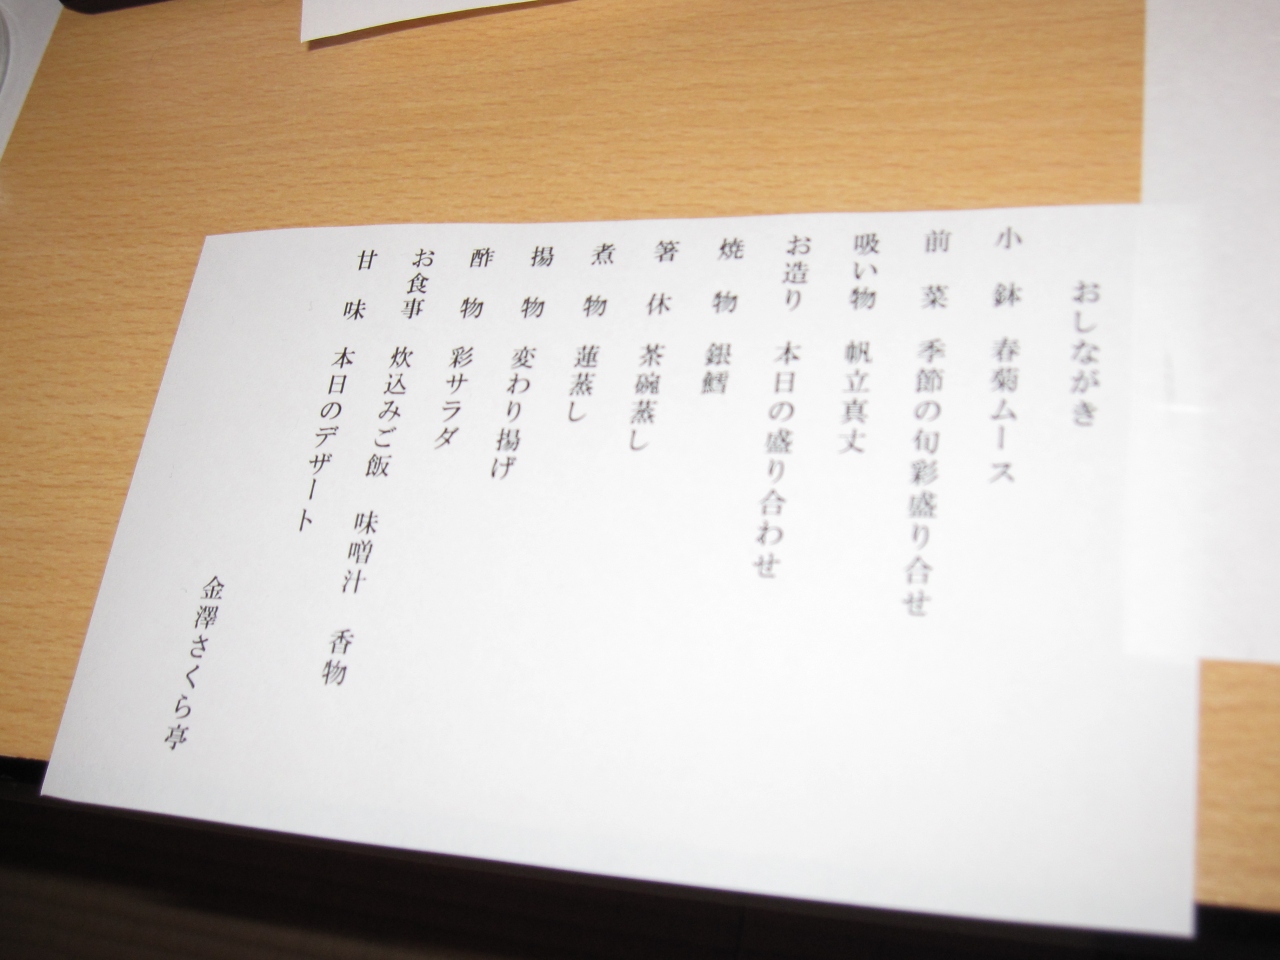 おしながき
小鉢 春菊ムース
前菜 季節の旬彩盛り合せ
吸い物 帆立真丈
お造り 本日の盛り合わせ
焼物 銀鱈
箸休 茶碗蒸し
煮物 蓮蒸し
揚物 変わり揚げ
酢物 彩サラダ
お食事 炊込みご飯 味噌汁 香物
甘味 本日のデザート
金澤さくら亭